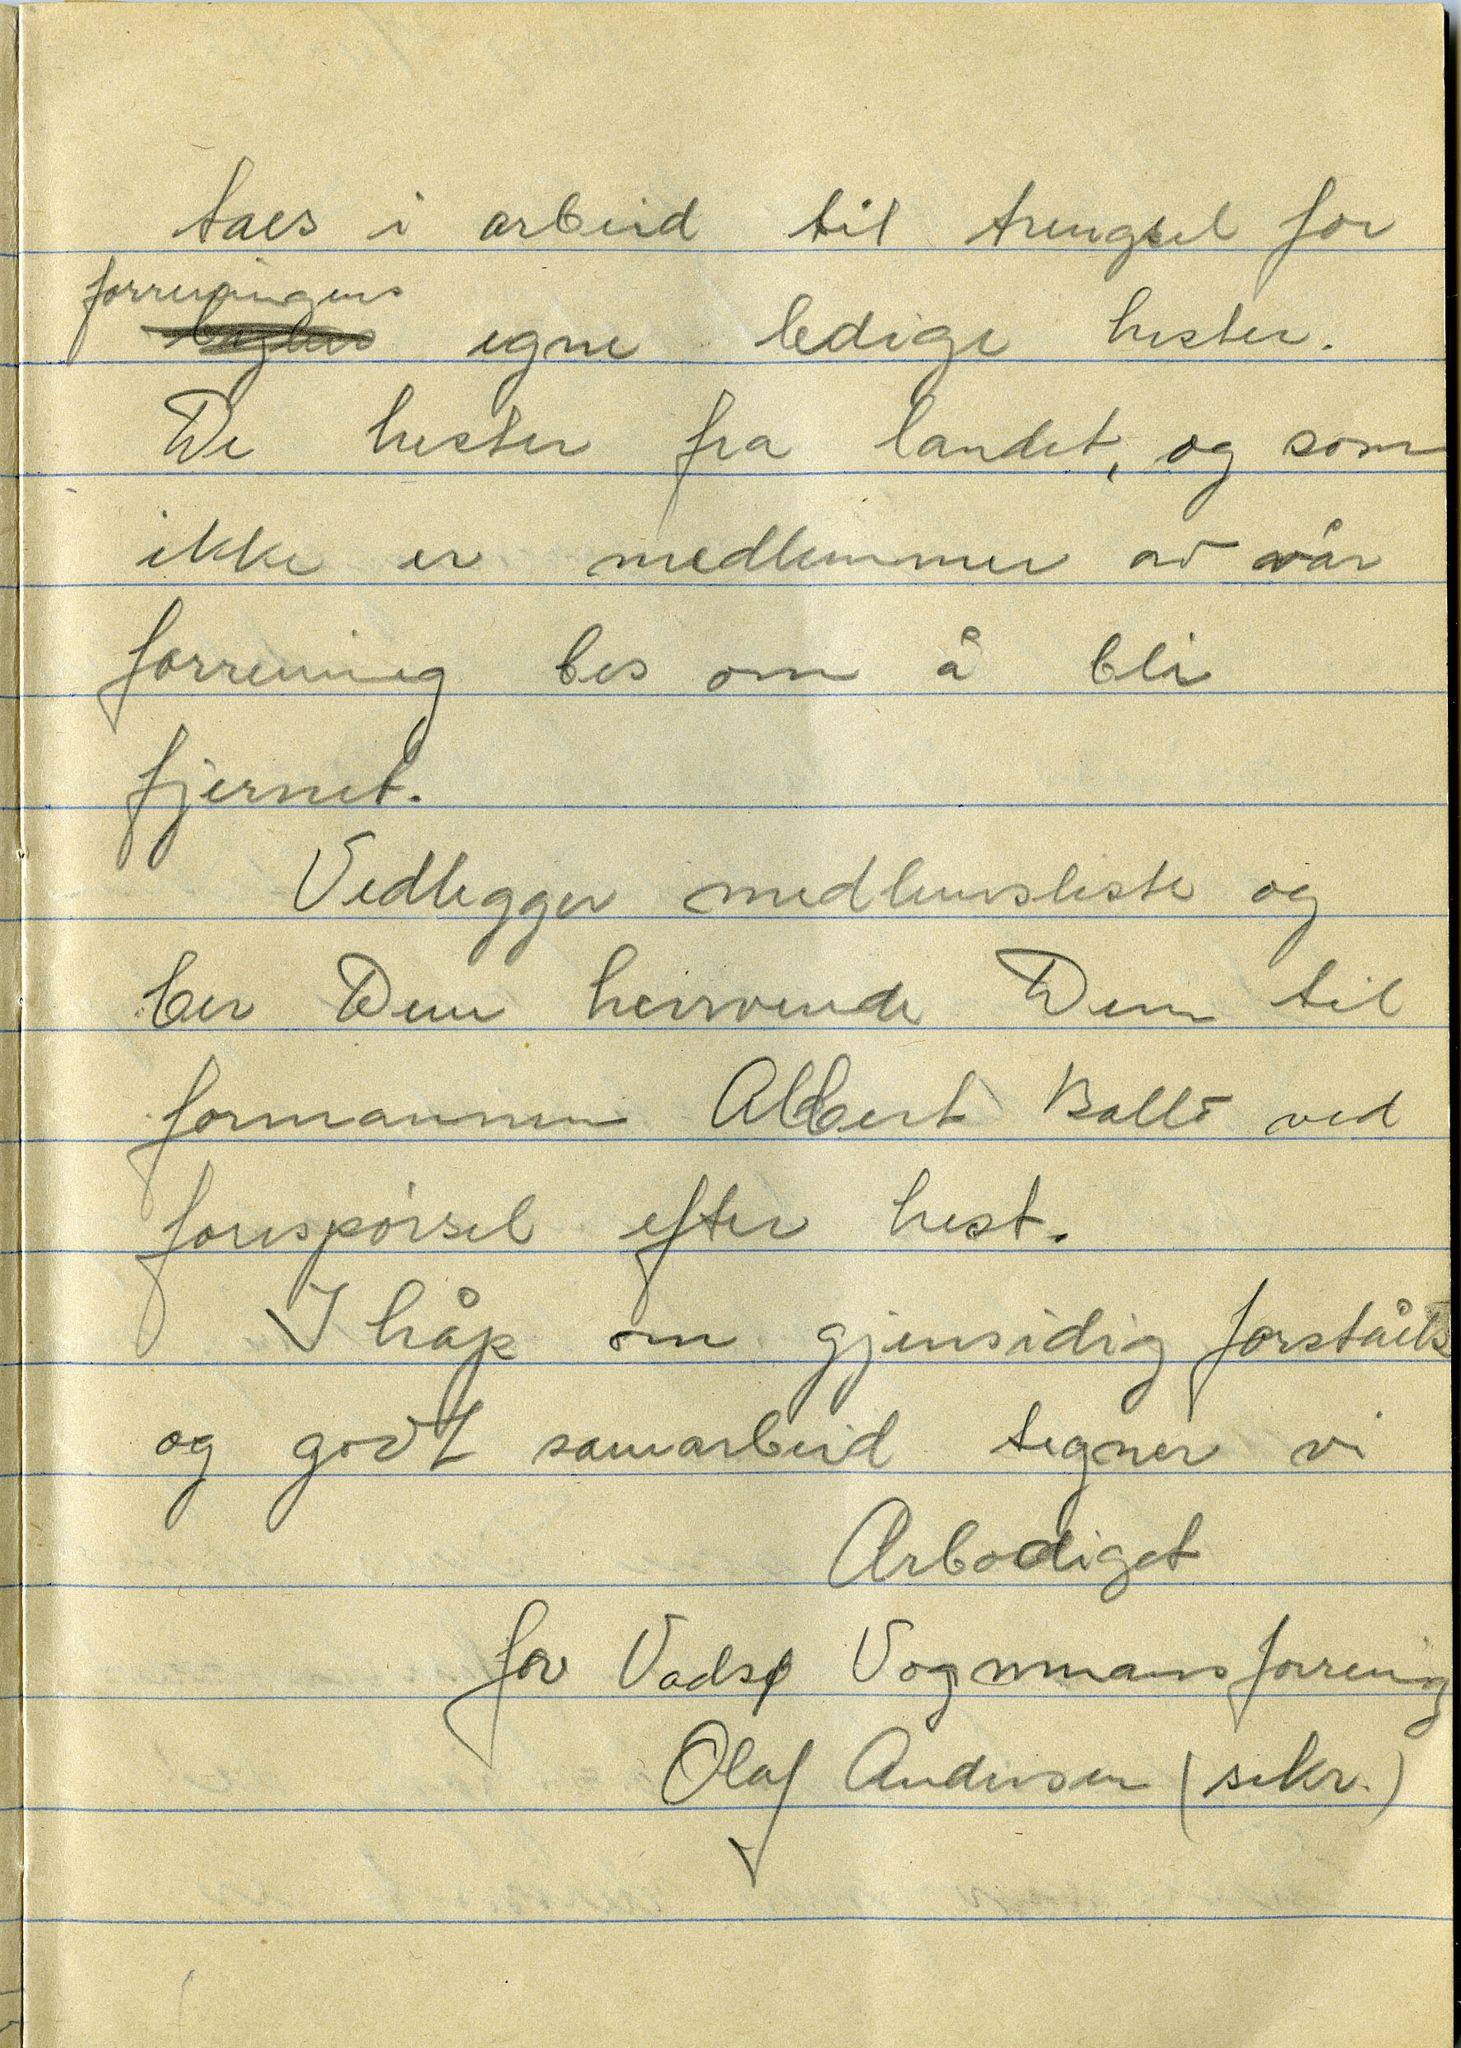 taes i arbeid til trengsel for
forreningens
egne ledige hester.
De hester fra landet, og som
ikke er medlemmer av vår
forrening bes om å bli
fjernet.
Vedlegger medlemsliste og
ber Dem henvende Dem til
formannen Albert Ballo ved
forespørsel efter hest.
I håp om gjensidig forståels
og godt samarbeid tegner vi
Arbødiget
for Vadsø Vognmansforrening
Olaf Andersen (sekr.)